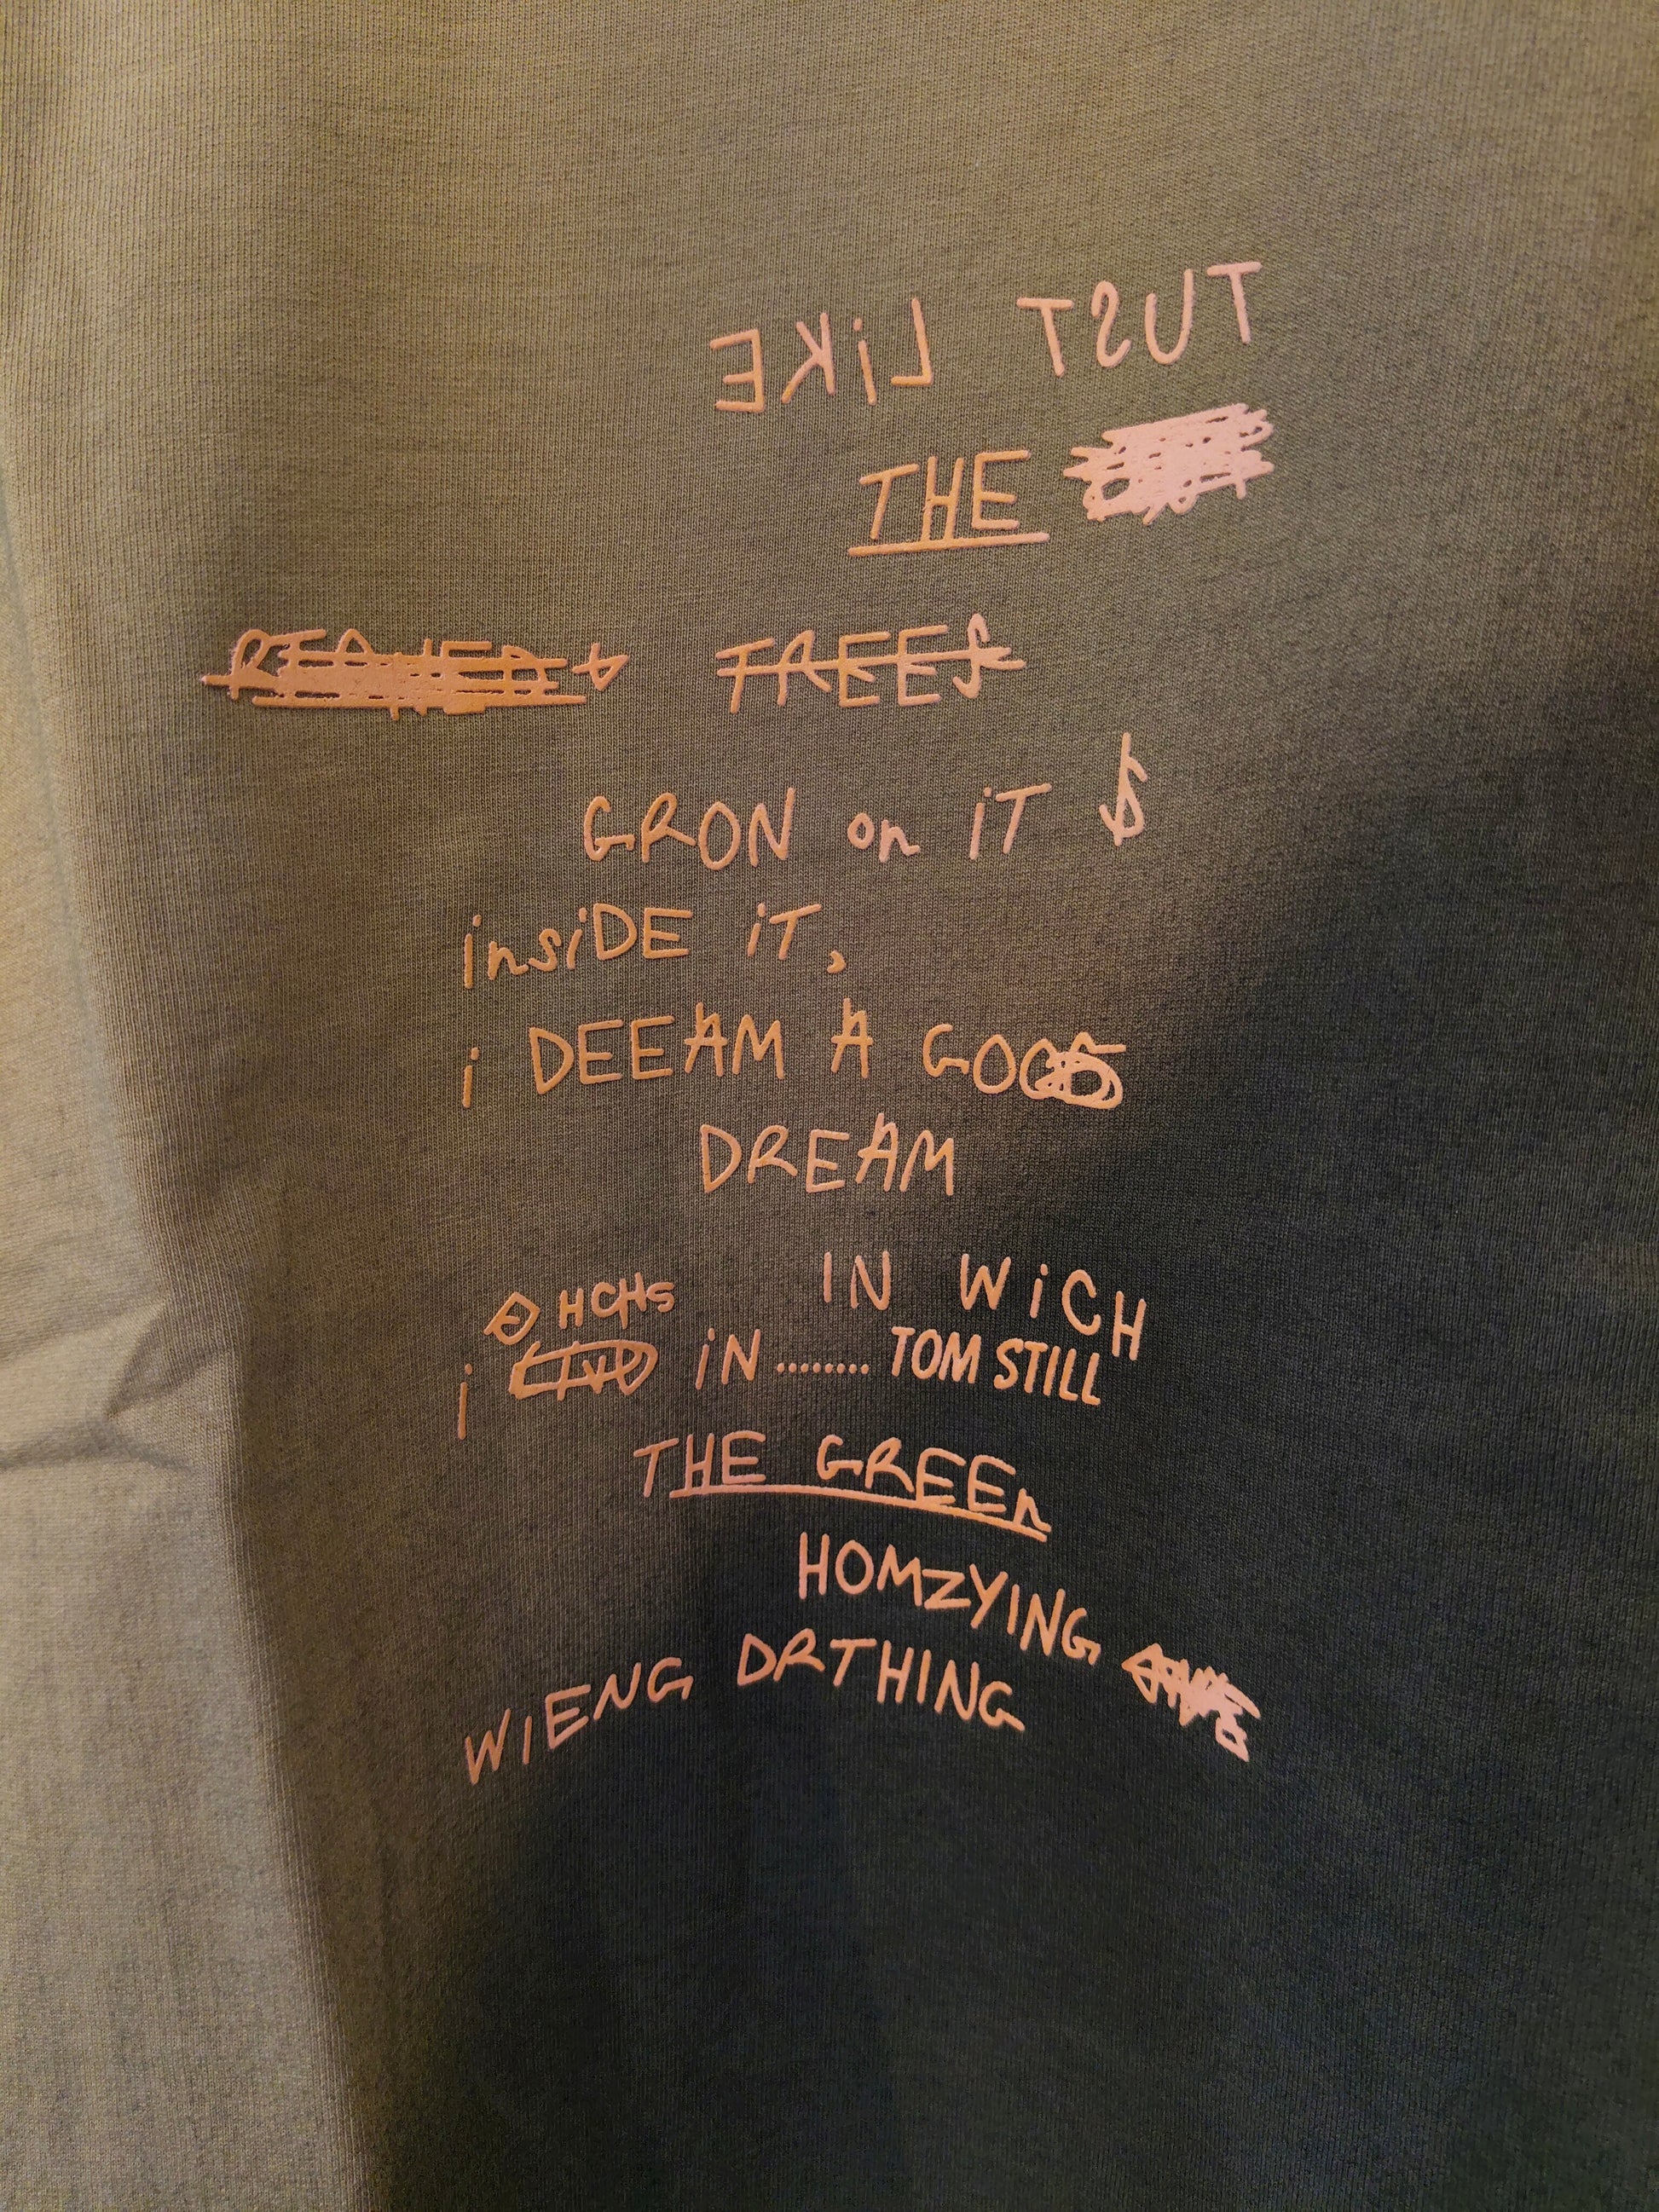 TUST LIKE
THE
TREES
GRON on iT $
insiDE iT,
i DEEAM A GOO
DREAM
IN WiCH
HCHS
i iN ........ TOM STILL
THE GREEn
HOMZYING
WIENG DRTHING